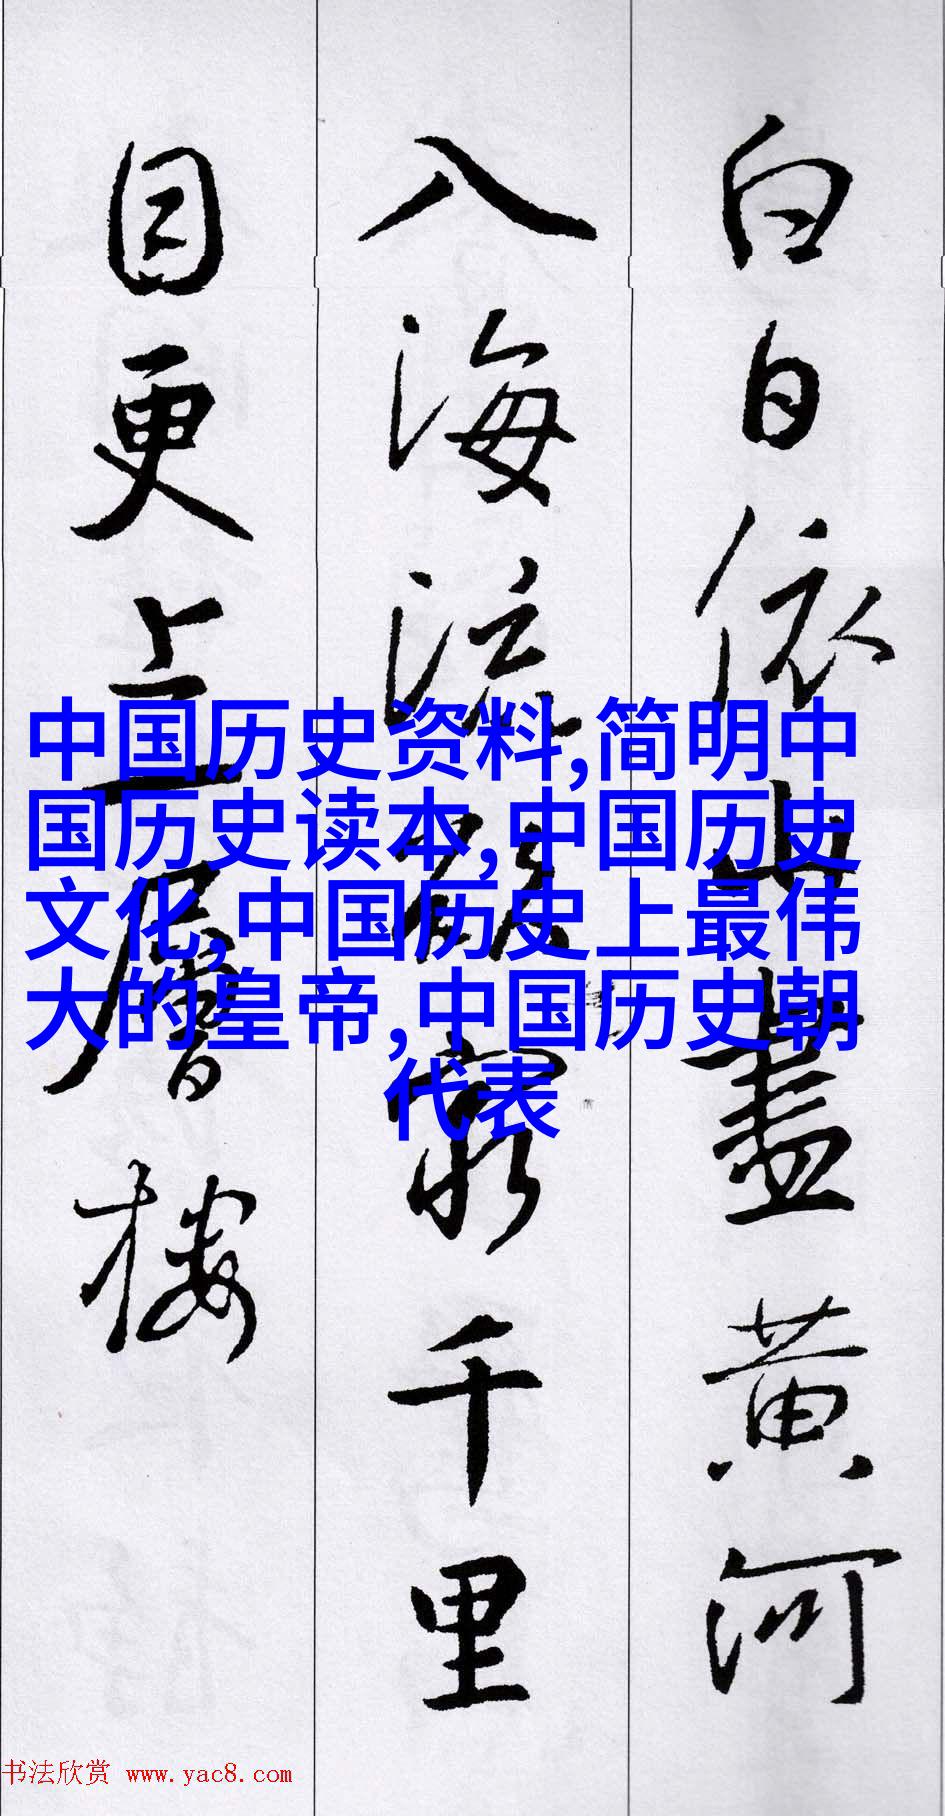 白日依山盡黄河
入海流欲窮千里
目更上一層樓
中国历史资料,简明中
国历史读本,中国历史
文化,中国历史上最伟
大的皇帝,中国历史朝
代表
书法欣赏 www.yac8.com